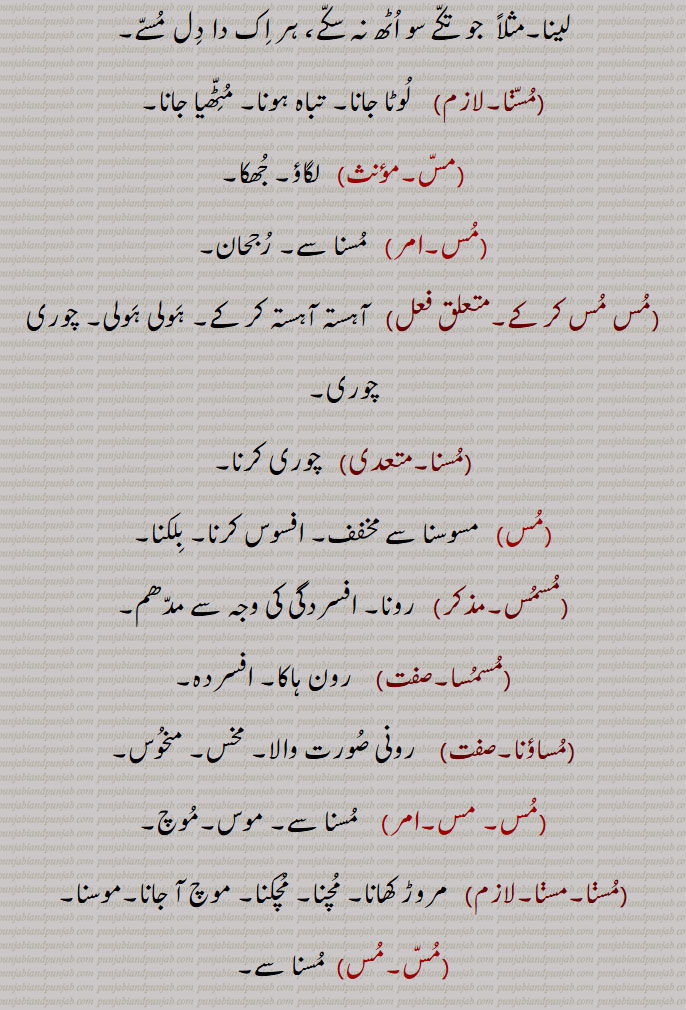 لینا۔مثلاً جو تکّے سو اُٹھ نہ سکّے، ہر اِک دا دِل مُسّے۔
(مُسّݨا۔لازم) لُوٹا جانا۔ تباہ ہونا۔ مُٹّھیا جانا۔
(مسّ۔مؤنث) لگاؤ۔ جُھکا۔
(مُس۔امر) مُسنا سے۔ رُجحان۔
(مُس مُس کر کے۔متعلق فعل) آہستہ آہستہ کر کے۔ ہَولی ہَولی۔ چوری
چوری۔
(مُسنا۔متعدی) چوری کرنا۔
(مُس) مسوسنا سے مخفف۔ افسوس کرنا۔ بِلکنا۔
(مُسمُس۔مذکر) رونا۔ افسردگی کی وجہ سے مدّھم۔
(مُسمُسا۔صفت) رون ہاکا۔ افسردہ۔
(مُساؤنا۔صفت) رونی صُورت والا۔ مخس۔ منحُوس۔
(مُس۔ مس۔امر) مُسنا سے۔ موس۔مُوچ۔
(مُسݨا۔مسݨا۔لازم) مروڑ کھانا۔ مُچنا۔ مُچکنا۔ موچ آ جانا۔موسنا۔
(مُسّ۔مُس) مُسنا سے۔